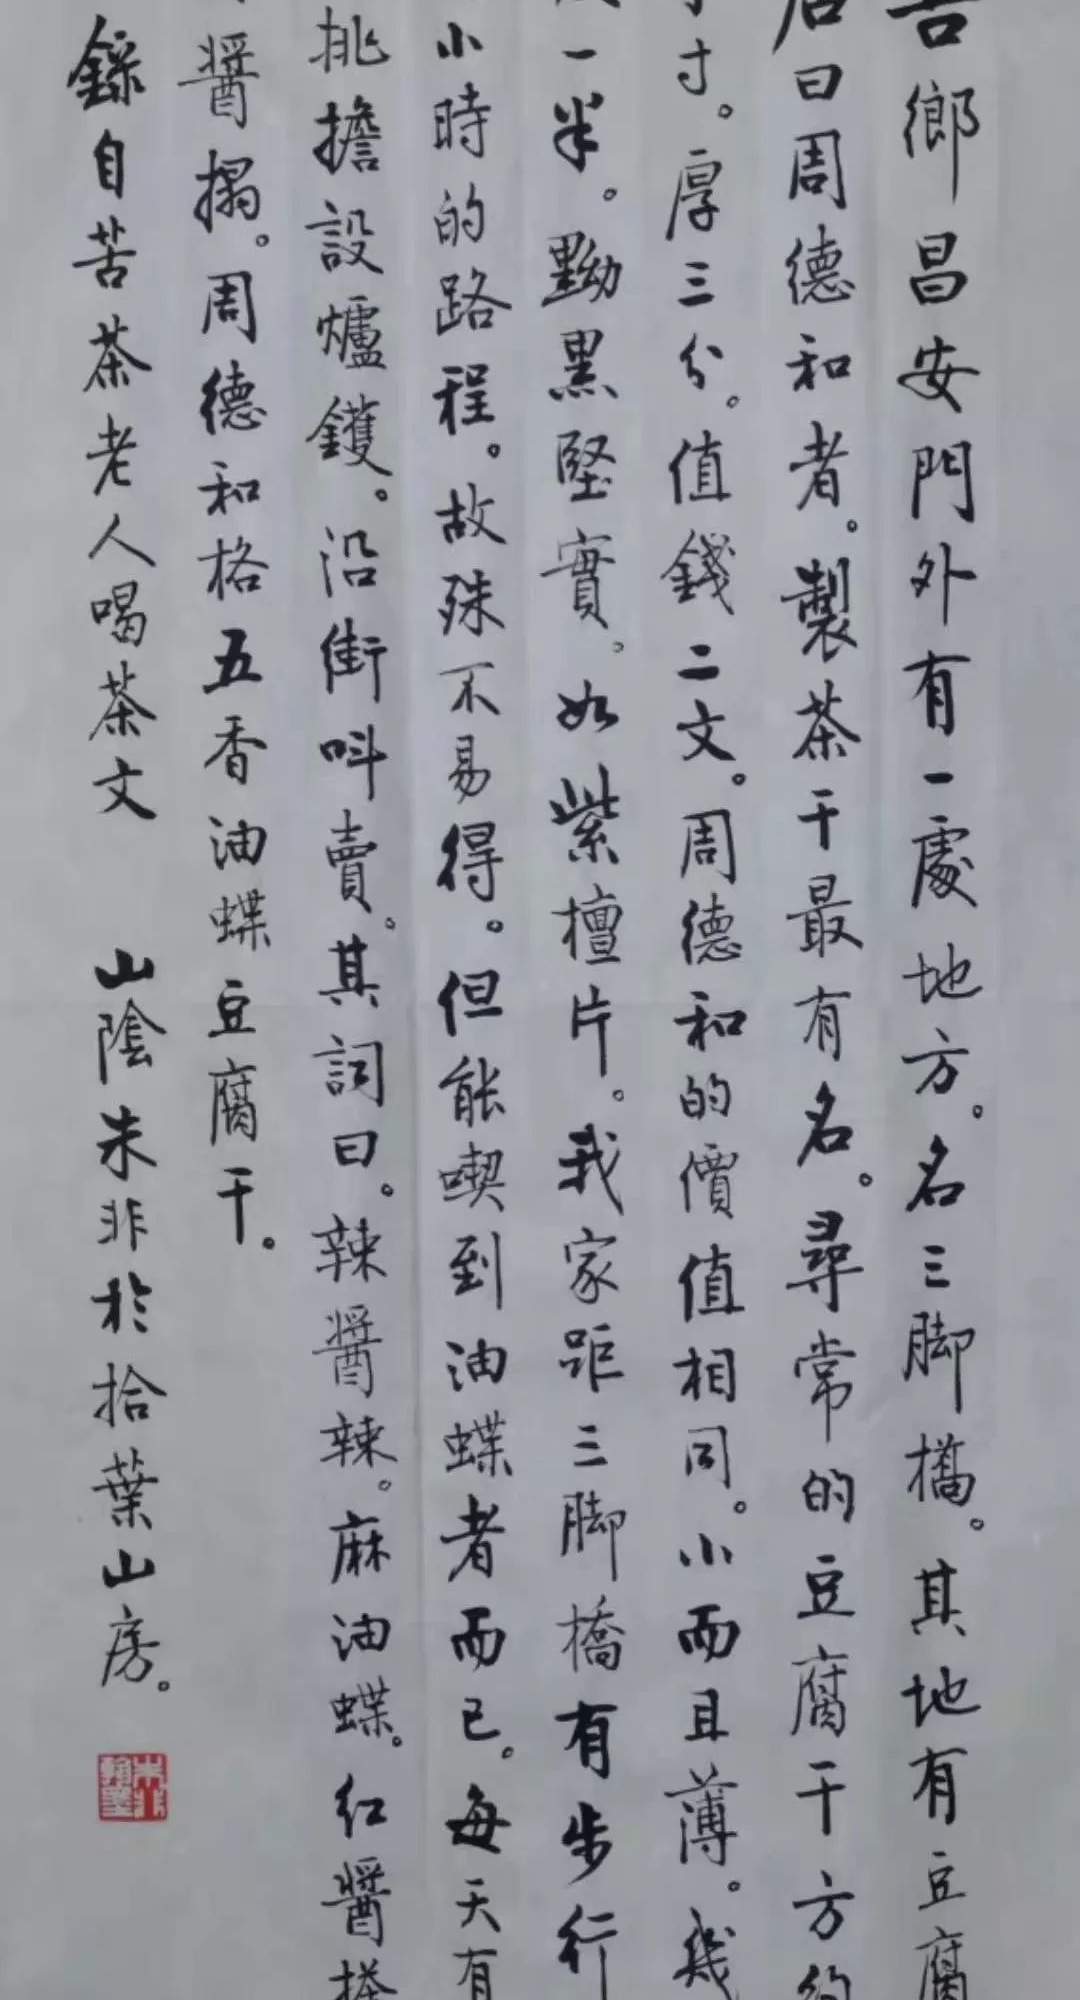 吾鄉昌安門外有一處地方。名三脚橋。其地有豆腐
店曰周德和者。製茶干最有名。尋常的豆腐干方約
寸。厚三分。值錢二文。周德和的價值相同。小而且薄。幾
一半。黝黑堅實。如紫檀片。我家距三脚橋有步行
小時的路程。故殊不易得。但能喫到油蝶者而已。每天有
挑擔設爐鑊。沿街叫賣。其詞曰。辣醬辣。麻油蝶。紅醬搽
醬搨。周德和格五香油蝶豆腐干。
錄自苦茶老人喝茶文 山陰朱非於拾葉山房。
朱非翰墨